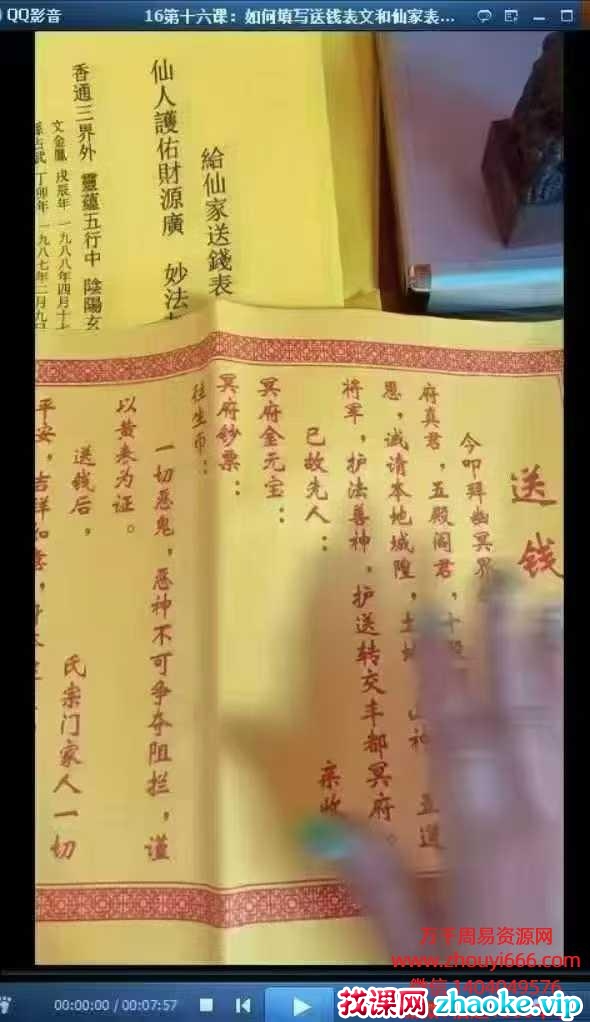 QQ影音
16第十六课：如何填写送钱表文和仙家表...
給仙家送錢表
仙人護佑財源廣 妙法
香通三界外 靈蘊五行中 陰陽玄
文金鳳 戊辰年 一九八八年四月十七
丁卯年 一九八七年二月九日
送钱
今叩拜幽冥界
府真君，五殿阎君，十殿
恩，诚请本地城隍，土地 山神 五道
将军，护法善神，护送转交丰都冥府。
已故先人： 亲收
冥府金元宝：
冥府钞票：
往生币：
一切恶鬼，恶神不可争夺阻拦，谨
以黄表为证。
送钱后， 氏宗门家人一切
平安，吉祥如意，
万千周易资源网
www.zhouyi666.com
微信 1404049576
找课网zhaoke.vip
00:00:00 / 00:07:57